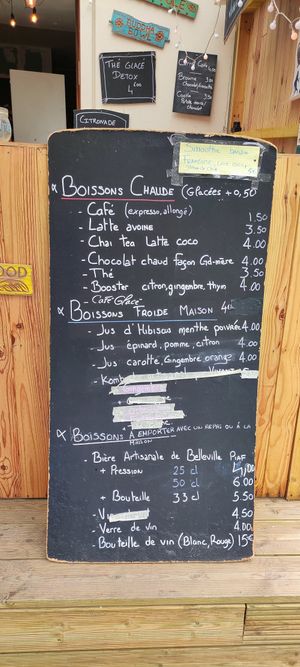 BUDDHA BOWL
THÉ GLACÉ
DETOX
4,00
CITRONADE
Cake
Brownie
Cookie
Smoothie
BOISSONS CHAUDE (Glacées +0,50
- Café (expresso, allongé) 1.50
- Latte avoine 3.50
- Chai tea Latte coco 4.00
- Chocolat chaud façon Gd-mère 4.00
- Thé 3.50
- Booster citron, gingembre, thym 4.00
- Café Glacé
BOISSONS FROIDE MAISON
- Jus d'Hibiscus menthe poivrée 4.00
- Jus épinard, pomme, citron 4.00
- Jus carotte, Gingembre orange 4.00
BOISSONS A EMPORTER AVEC UN REPAS OU À LA
MAISON
- Bière Artisanale de Belleville PAF
+ Pression 25 cl 4,00
50 cl 6.00
+ Bouteille 33 cl 5.50
4.50
- Verre de vin 4.00
- Bouteille de vin (Blanc, Rouge) 15€
OOD